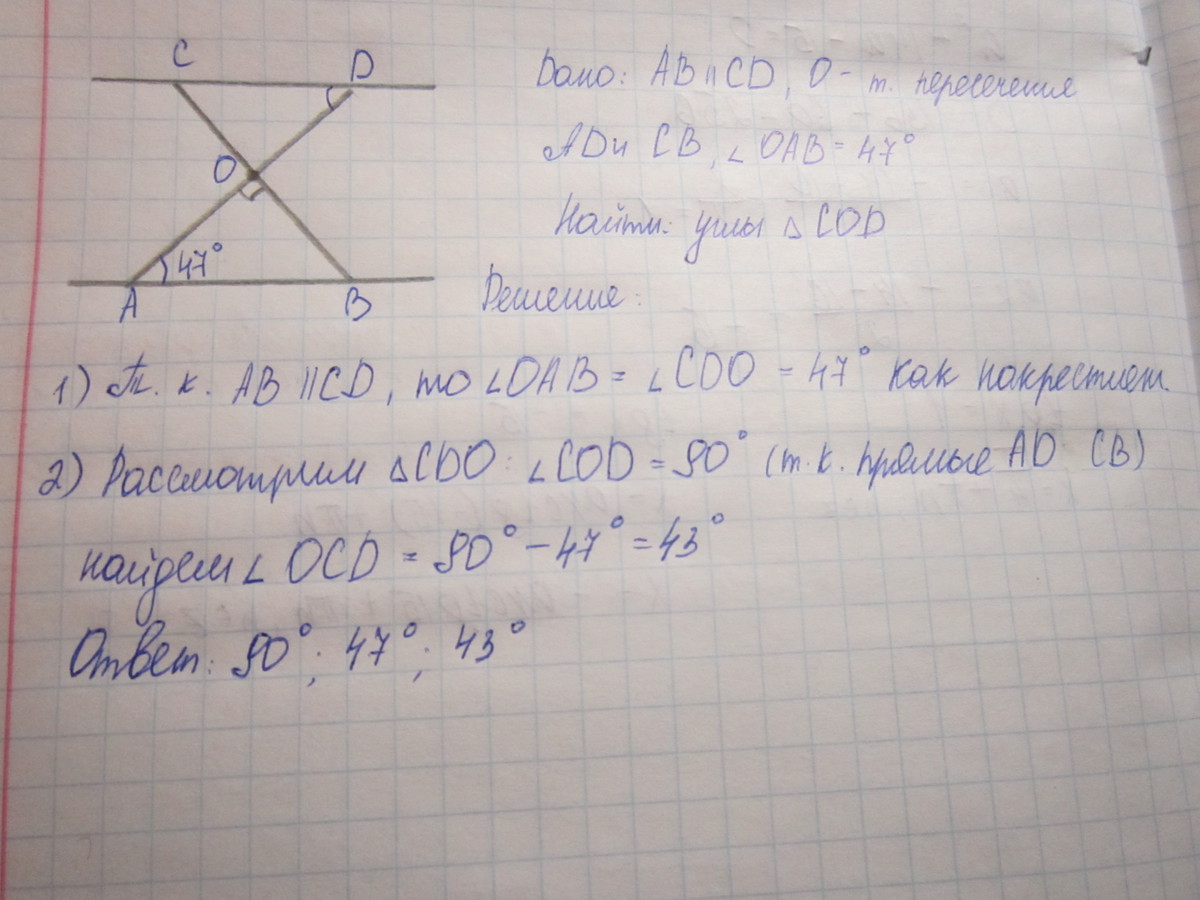 C
D
O
47°
A
B
Дано: AB || CD, O - т. пересечения
AD и CB, ∠OAB = 47°
Найти: углы △ COD
Решение:
1) Т. к. AB || CD, то ∠OAB = ∠CDO = 47° как накрестлеж.
2) Рассмотрим △CDO: ∠COD = 90° (т.к. прямые AD CB)
найдем ∠ OCD = 90° - 47° = 43°
Ответ: 90°; 47°; 43°